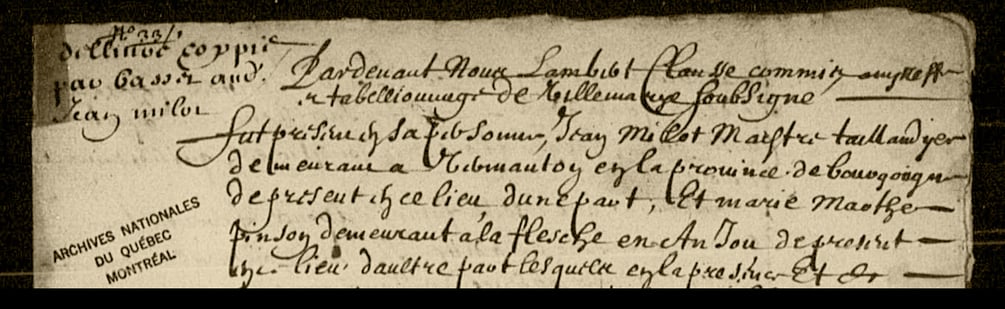 No 331
dellivré coppie
par basset aud.
Jean milot
Pardevant Nous Lambert Closse commis au greffe
et tabellionnage de Villemarye soubsigne
fut present en sa personne, Jean Millot Maistre taillandyer
demeurant a en la province de bourgoigne
de present en ce lieu dune part, Et marie Marthe
pinson demeurant à la flesche en Anjou de present
en ce lieu d'aultre part lesquelz en la presence Et de
ARCHIVES NATIONALES
DU QUÉBEC
MONTRÉAL